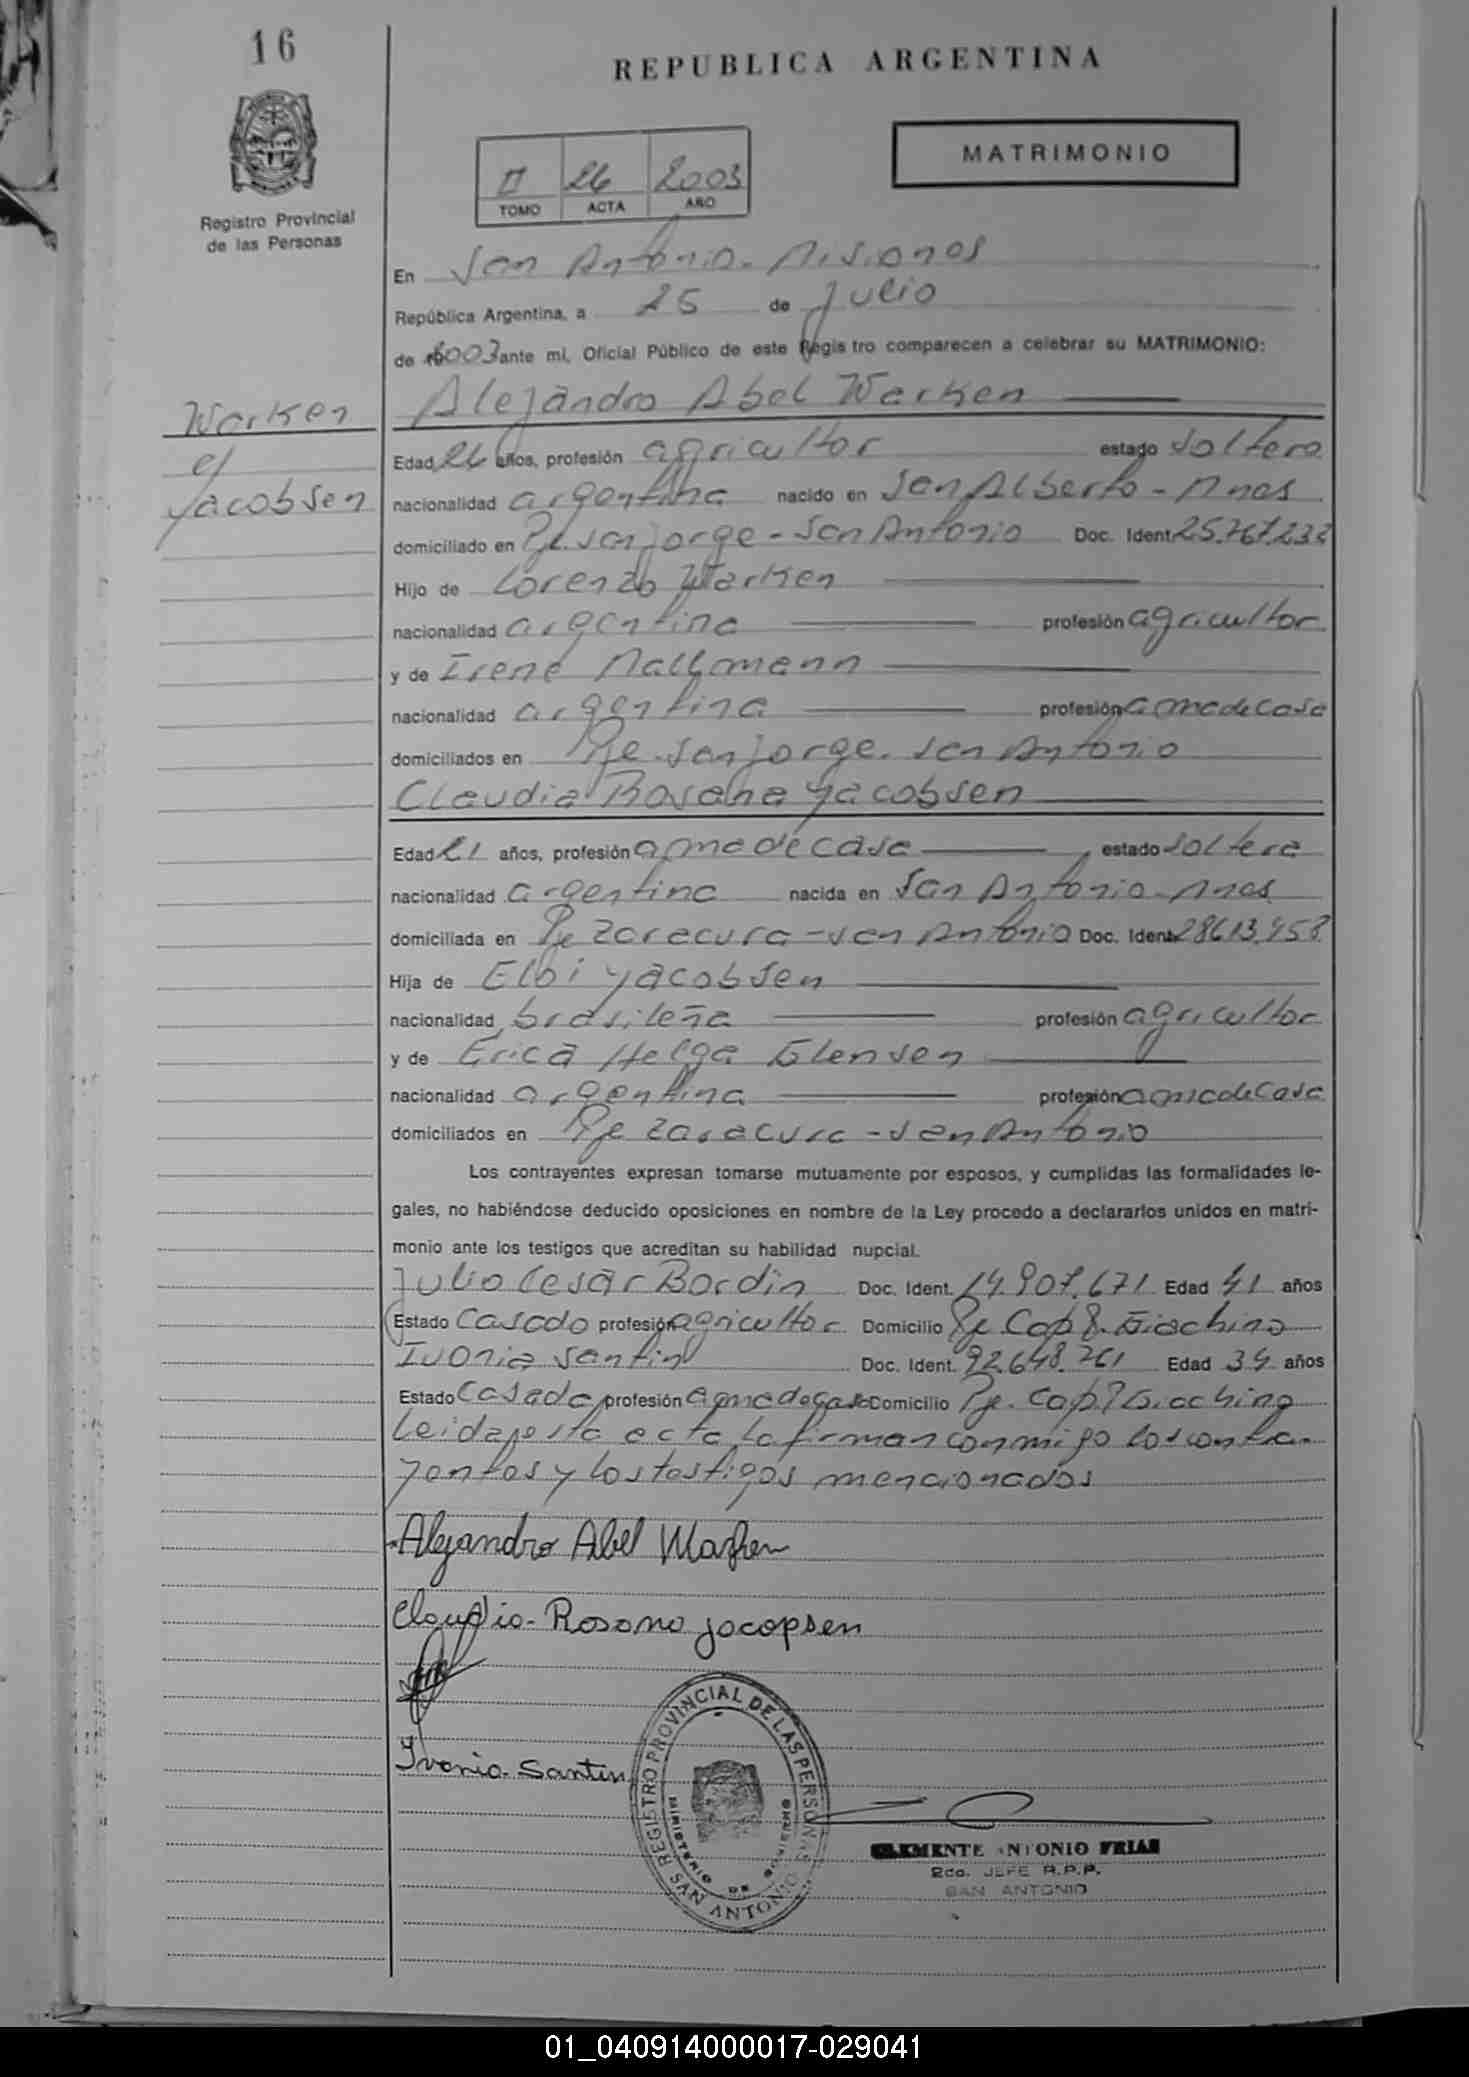 16
REPUBLICA ARGENTINA
MATRIMONIO
II 26 2003
TOMO ACTA AÑO
Registro Provincial
de las Personas
En San Antonio - Misiones
República Argentina, a 25 de Julio
de 2003 ante mi, Oficial Público de este Registro comparecen a celebrar su MATRIMONIO:
Alejandro Abel Warken
Warken
c/
Yacobsen
Edad 26 años, profesión agricultor estado soltero
nacionalidad argentina nacido en San Alberto - Mnes
domiciliado en Pje. San Jorge - San Antonio Doc. Ident. 25.767.232
Hijo de Lorenzo Warken
nacionalidad argentina profesión agricultor
y de Irene Mallmann
nacionalidad argentina profesión ama de casa
domiciliados en Pje. San Jorge. San Antonio
Claudia Rosana Yacobsen
Edad 21 años, profesión ama de casa estado soltera
nacionalidad argentina nacida en San Antonio - Mnes
domiciliada en Pje Zaracura - San Antonio Doc. Ident. 28613.458
Hija de Eloi Yacobsen
nacionalidad brasileña profesión agricultor
y de Erica Helga Elensen
nacionalidad argentina profesión ama de casa
domiciliados en Pje Zaracura - San Antonio
Los contrayentes expresan tomarse mutuamente por esposos, y cumplidas las formalidades le-
gales, no habiéndose deducido oposiciones en nombre de la Ley procedo a declararlos unidos en matri-
monio ante los testigos que acreditan su habilidad nupcial.
Julio Cesar Bordin Doc. Ident. 14.907.671 Edad 41 años
Estado Casado profesión agricultor Domicilio Pje. Cap. Giachino
Ivonia Santin Doc. Ident. 92.648.761 Edad 34 años
Estado Casada profesión ama de casa Domicilio Pje. Cap. Giachino
Leida esta acta la firman conmigo los contra-
yentes y los testigos mencionados
Alejandro Abel Warken
Claudia Rosana Jacopsen
Ivonia Santin
REGISTRO PROVINCIAL DE LAS PERSONAS
MINISTERIO DE GOBIERNO
SAN ANTONIO
CLEMENTE ANTONIO FRIAS
2do. JEFE R.P.P.
SAN ANTONIO
01_040914000017-029041